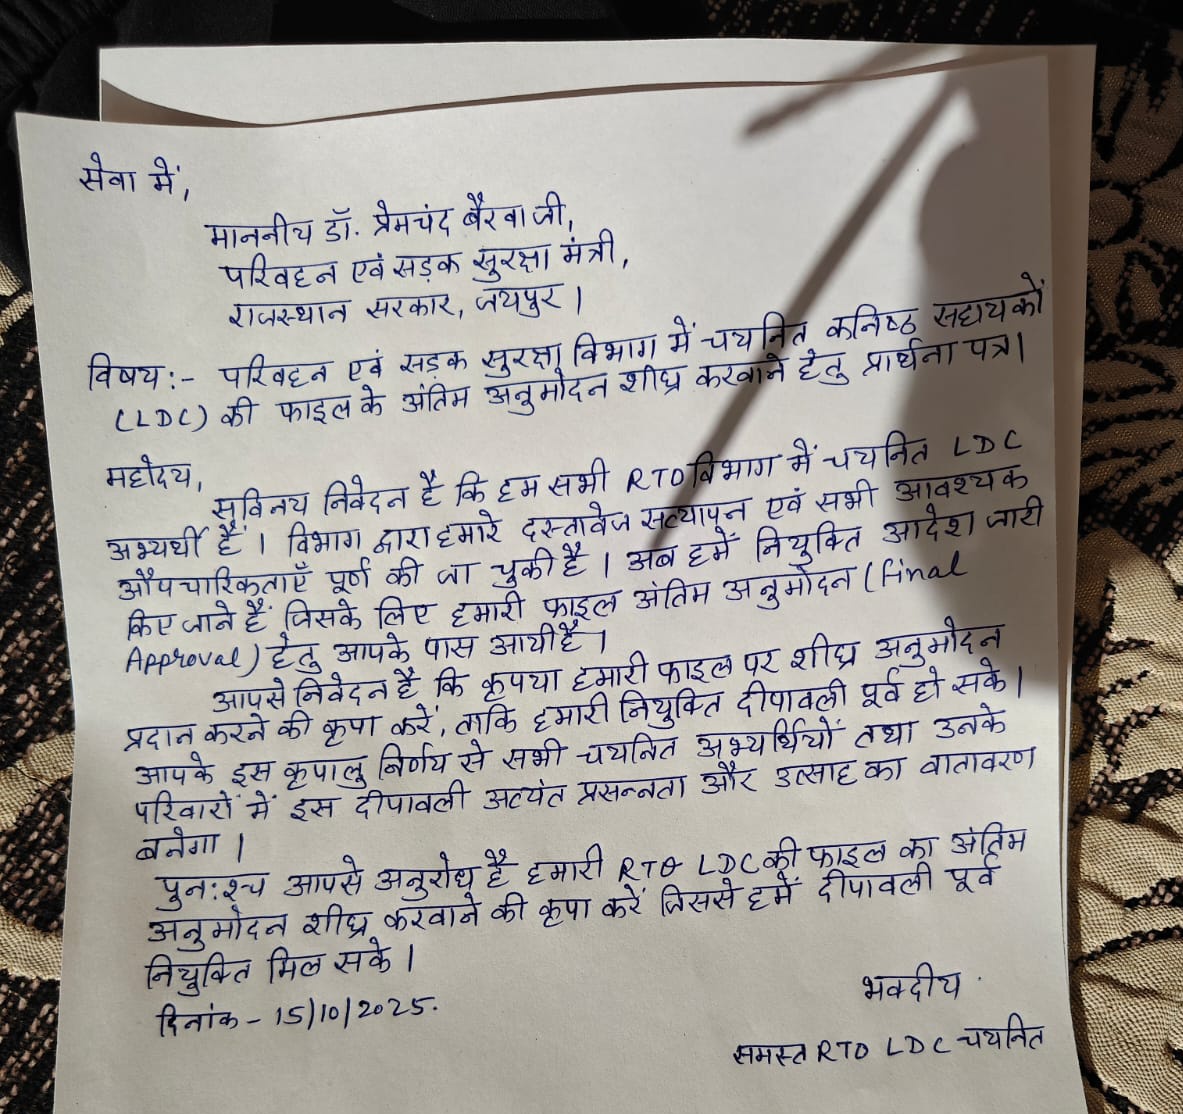 सेवा में,
माननीय डॉ. प्रेमचंद बैरवा जी,
परिवहन एवं सड़क सुरक्षा मंत्री,
राजस्थान सरकार, जयपुर।
विषय:- परिवहन एवं सड़क सुरक्षा विभाग में चयनित कनिष्ठ सहायकों
(LDC) की फाइल के अंतिम अनुमोदन शीघ्र करवाने हेतु प्रार्थना पत्र।
महोदय,
सविनय निवेदन है कि हम सभी RTO विभाग में चयनित LDC
अभ्यर्थी हैं। विभाग द्वारा हमारे दस्तावेज सत्यापन एवं सभी आवश्यक
औपचारिकताएँ पूर्ण की जा चुकी है। अब हमें नियुक्ति आदेश जारी
किए जाने हैं जिसके लिए हमारी फाइल अंतिम अनुमोदन (final
Approval) हेतु आपके पास आयी है।
आपसे निवेदन है कि कृपया हमारी फाइल पर शीघ्र अनुमोदन
प्रदान करने की कृपा करें, ताकि हमारी नियुक्ति दीपावली पूर्व हो सके।
आपके इस कृपालु निर्णय से सभी चयनित अभ्यर्थियों तथा उनके
परिवारों में इस दीपावली अत्यंत प्रसन्नता और उत्साह का वातावरण
बनेगा।
पुन:श्च आपसे अनुरोध है हमारी RTO LDC की फाइल का अंतिम
अनुमोदन शीघ्र करवाने की कृपा करें जिससे हमें दीपावली पूर्व
नियुक्ति मिल सके।
दिनांक - 15/10/2025.
भवदीय
समस्त RTO LDC चयनित